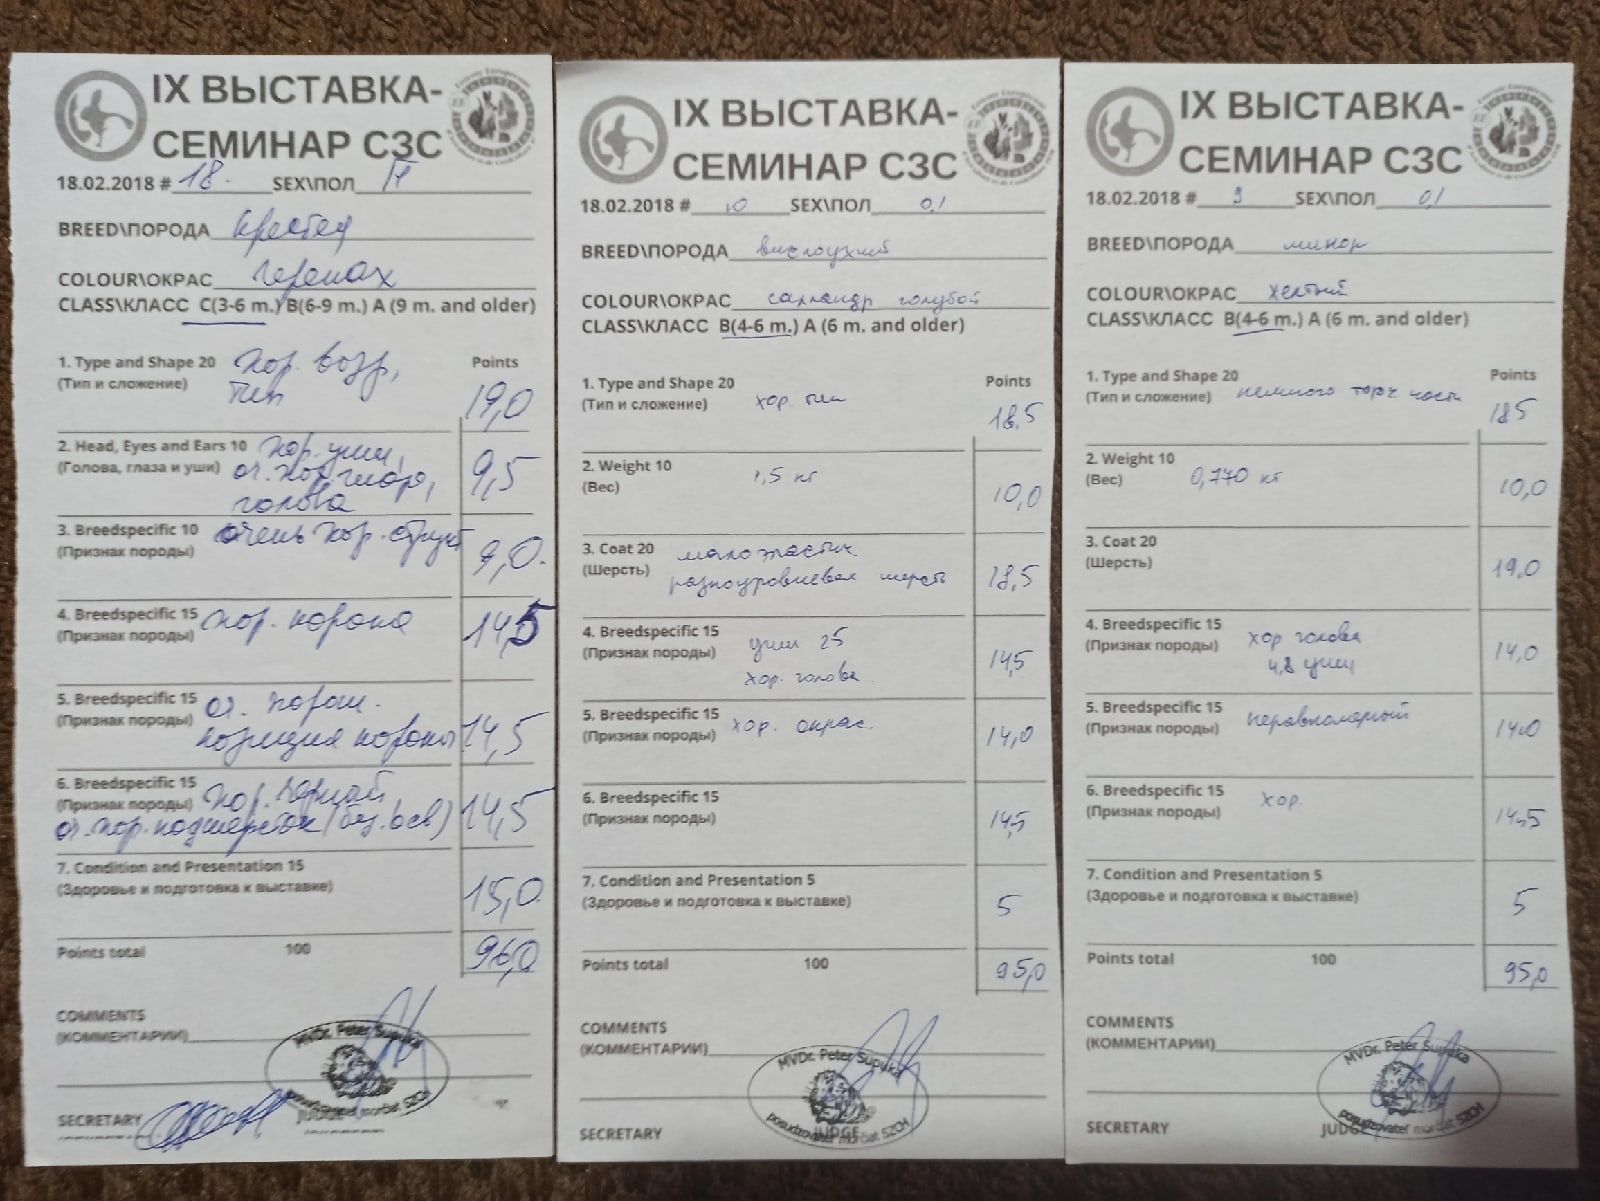 IX ВЫСТАВКА-
СЕМИНАР СЗС
18.02.2018 # 18. SEX\ПОЛ
BREED\ПОРОДА
COLOUR\ОКРАС черепах
CLASS\КЛАСС C(3-6 m.) B(6-9 m.) A (9 m. and older)
1. Type and Shape 20 хор. возр, Points
(Тип и сложение) тип 19,0
2. Head, Eyes and Ears 10 хор. уши,
(Голова, глаза и уши) оч. хор. 9,5
голова
3. Breedspecific 10 очень хор.
(Признак породы) 9,0.
4. Breedspecific 15 хор. корона
(Признак породы) 14,5
5. Breedspecific 15 оч. хорош.
(Признак породы) позиция короны 14,5
6. Breedspecific 15 хор. черный
(Признак породы) 14,5
оч. хор. подшерсток
7. Condition and Presentation 15
(Здоровье и подготовка к выставке) 15,0
Points total 100 96,0
COMMENTS
(КОММЕНТАРИИ)
MVDr. Peter Supuka
posudzovateľ morčiat SZCH
SECRETARY JUDGE
IX ВЫСТАВКА-
СЕМИНАР СЗС
18.02.2018 # 10 SEX\ПОЛ 0,1
BREED\ПОРОДА вислоухий
COLOUR\ОКРАС голубой
CLASS\КЛАСС B(4-6 m.) A (6 m. and older)
1. Type and Shape 20 Points
(Тип и сложение) хор. тип 18,5
2. Weight 10 1,5 кг
(Вес) 10,0
3. Coat 20 малоэластич.
(Шерсть) разноуровневая шерсть 18,5
4. Breedspecific 15 уши 25
(Признак породы) хор. голова. 14,5
5. Breedspecific 15 хор. окрас.
(Признак породы) 14,0
6. Breedspecific 15
(Признак породы) 14,5
7. Condition and Presentation 5
(Здоровье и подготовка к выставке) 5
Points total 100 95,0
COMMENTS
(КОММЕНТАРИИ)
MVDr. Peter Supuka
posudzovateľ morčiat SZCH
SECRETARY JUDGE
IX ВЫСТАВКА-
СЕМИНАР СЗС
18.02.2018 # 9 SEX\ПОЛ 0,1
BREED\ПОРОДА минор
COLOUR\ОКРАС желтый
CLASS\КЛАСС B(4-6 m.) A (6 m. and older)
1. Type and Shape 20 Points
(Тип и сложение) немного торч кости 18,5
2. Weight 10 0,770 кг
(Вес) 10,0
3. Coat 20
(Шерсть) 19,0
4. Breedspecific 15 хор голова
(Признак породы) 4,8 уши 14,0
5. Breedspecific 15 неравномерный
(Признак породы) 14,0
6. Breedspecific 15 хор.
(Признак породы) 14,5
7. Condition and Presentation 5
(Здоровье и подготовка к выставке) 5
Points total 100 95,0
COMMENTS
(КОММЕНТАРИИ)
MVDr. Peter Supuka
posudzovateľ morčiat SZCH
SECRETARY JUDGE